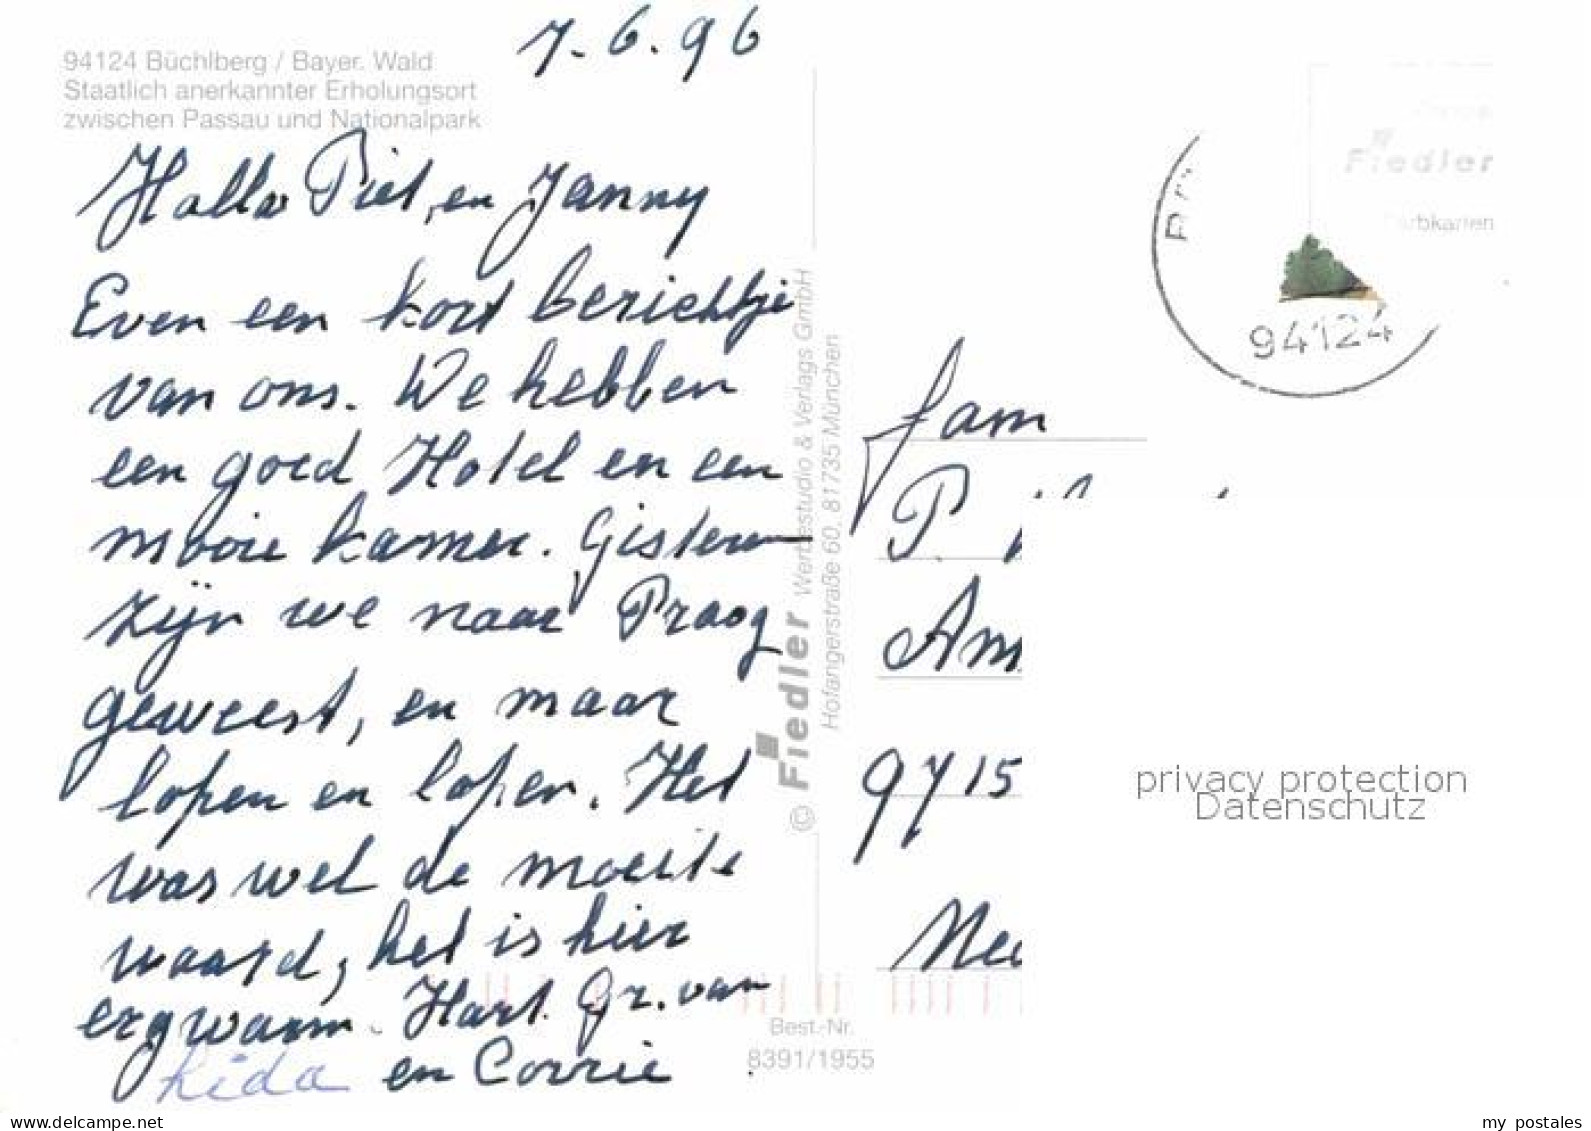 7.6.96
94124 Büchlberg / Bayer. Wald
Staatlich anerkannter Erholungsort
zwischen Passau und Nationalpark
Hallo Piet en Janny
Even een kort berichtje
van ons. We hebben
een goed Hotel en een
mooie kamer. Gisteren
zijn we naar Praag
geweest, en maar
lopen en lopen. Het
was wel de moeite
waard, het is hier
erg warm. Hart. Gr. van
Lida en Corrie
© Fiedler Werbestudio & Verlags GmbH
Hofangerstraße 60, 81735 München
Best.-Nr.
8391/1955
Fiedler
94124
fam
P.
Am
9715
Nee
privacy protection
Datenschutz
www.delcampe.net
my_postales